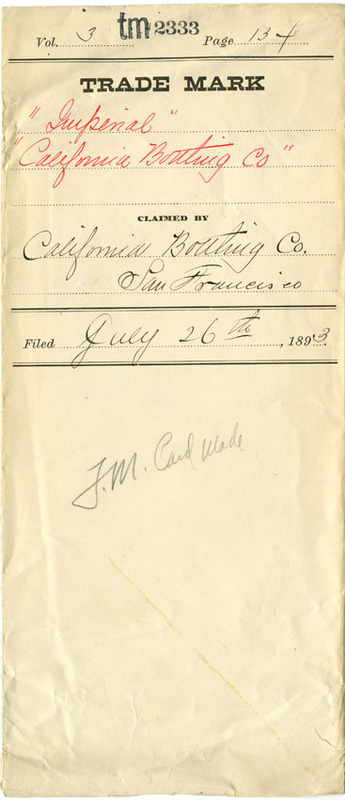 Vol. 3 tm 2333 Page 134
TRADE MARK
"Imperial"
"California Bottling Co"
CLAIMED BY
California Bottling Co.
San Francisco
Filed July 26th, 1893.
T.M. Card Made